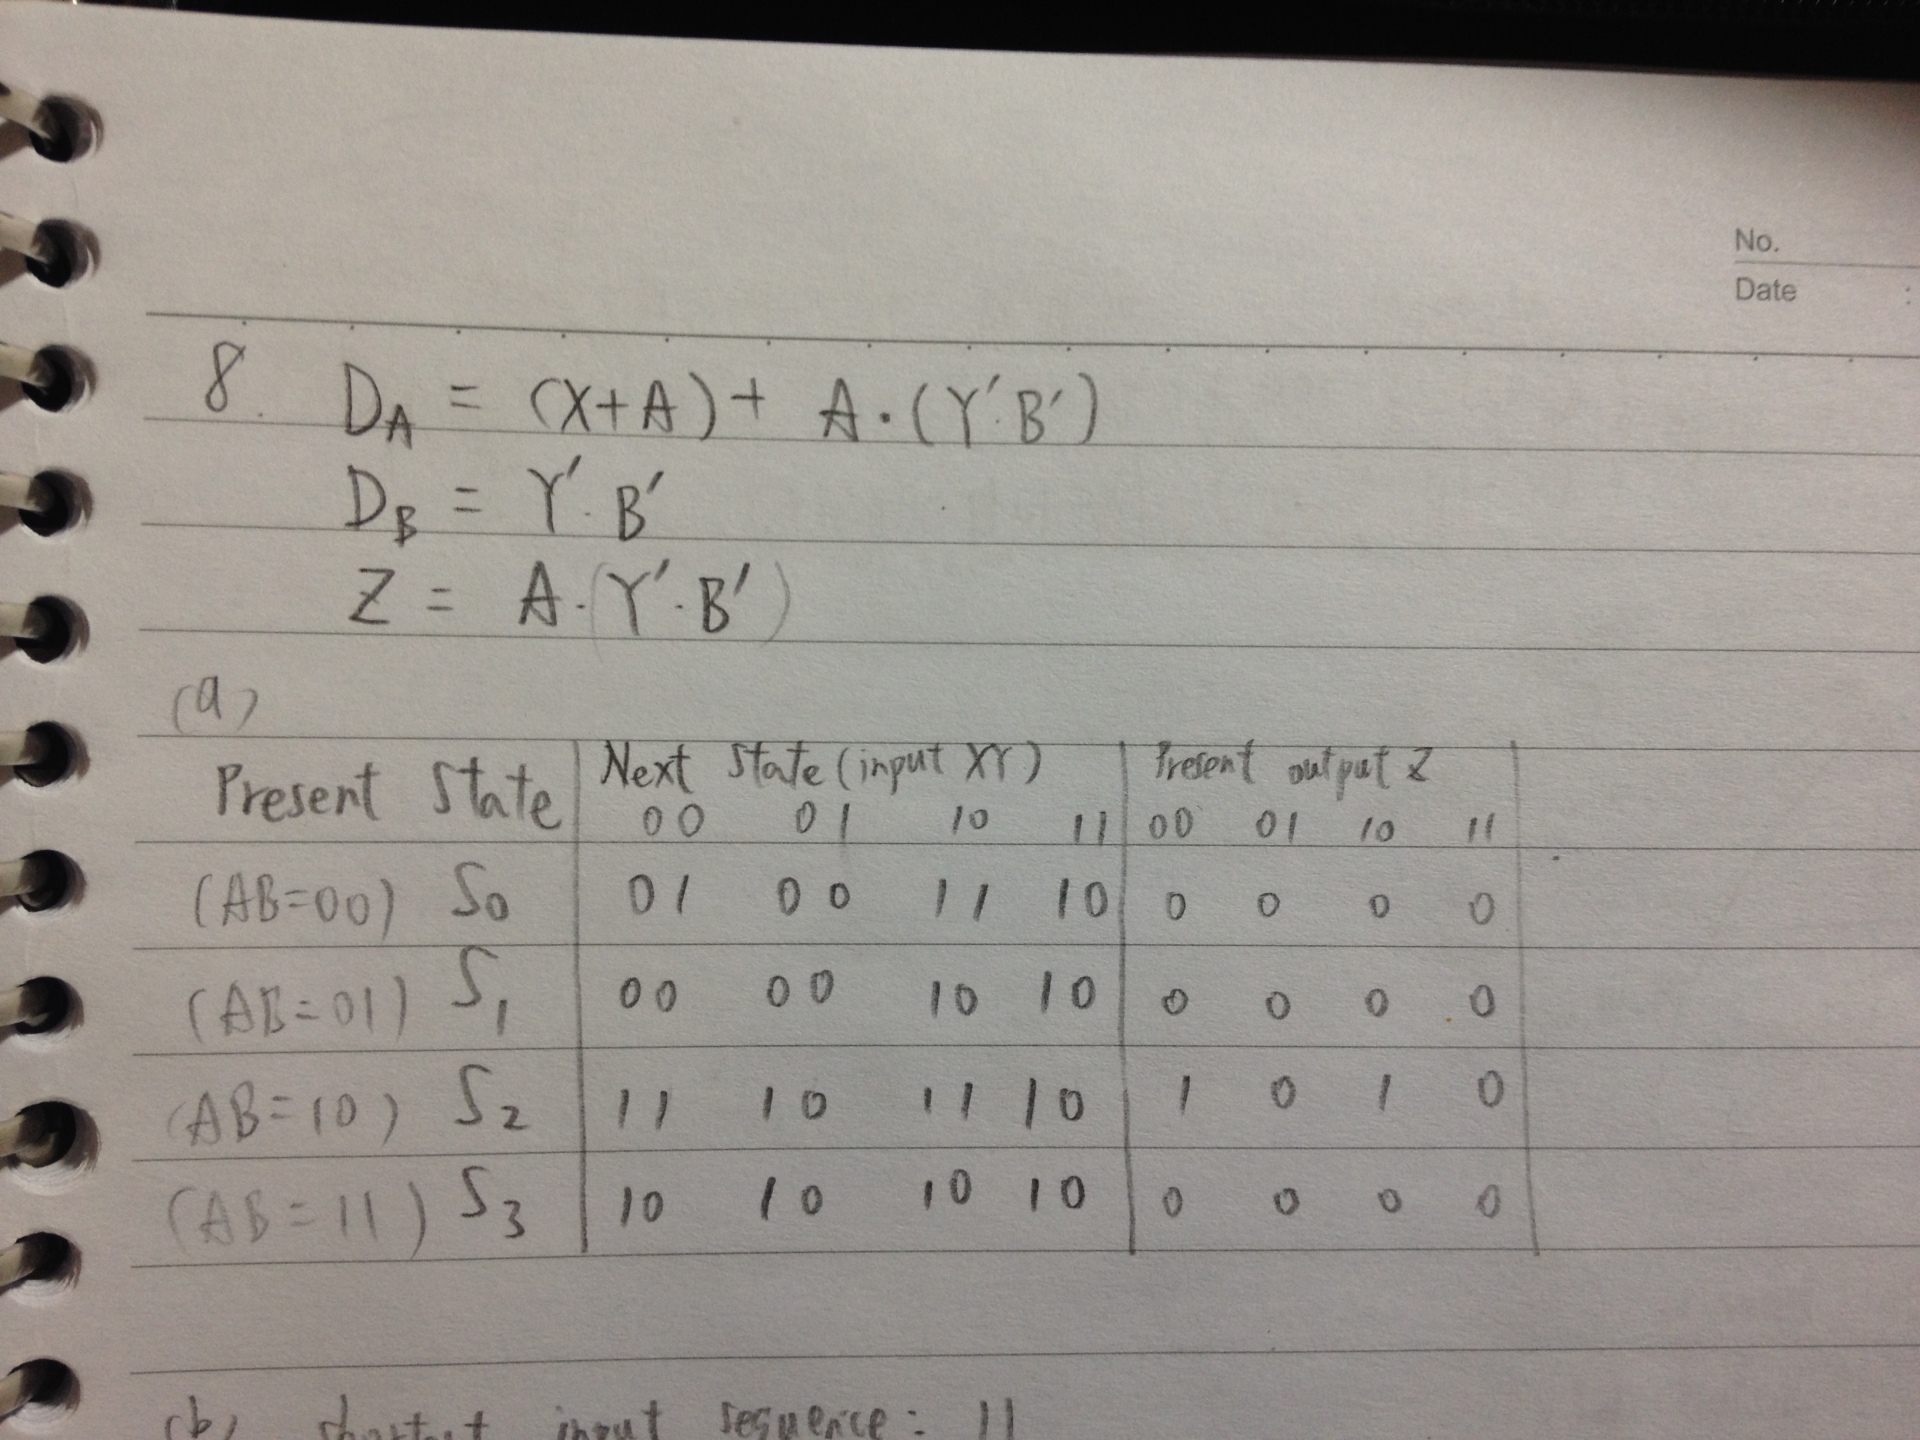 No.
Date :
8. D_A = (X+A)+ A·(Y'·B')
D_B = Y'·B'
Z = A·(Y'·B')
(a)
Present State | Next State (input XY) | Present output Z
00 01 10 11 | 00 01 10 11
(AB=00) S0 | 01 00 11 10 | 0 0 0 0
(AB=01) S1 | 00 00 10 10 | 0 0 0 0
(AB=10) S2 | 11 10 11 10 | 1 0 1 0
(AB=11) S3 | 10 10 10 10 | 0 0 0 0
(b) shortest input sequence: 11